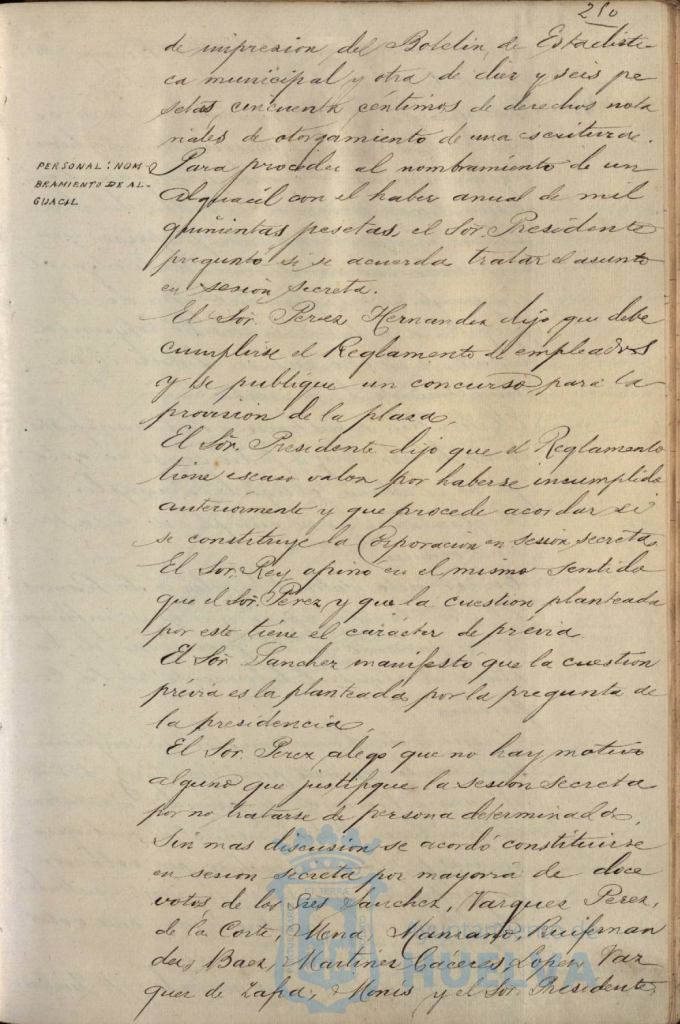 210
de impresion del Boletin de Estadisti-
ca municipal y otra de diez y seis pe
setas cincuenta céntimos de derechos nota
riales de otorgamiento de una escritura.
PERSONAL: NOM-
BRAMIENTO DE AL-
GUACIL
Para proceder al nombramiento de un
Alguacil con el haber anual de mil
quinientas pesetas, el Sor. Presidente
preguntó si se acuerda tratar el asunto
en sesión secreta.
El Sor. Perez Hernandez dijo que debe
cumplirse el Reglamento de empleados
y se publique un concurso para la
provision de la plaza.
El Sor. Presidente dijo que el Reglamento
tiene escaso valor por haberse incumplido
anteriormente y que procede acordar si
se constituye la Corporacion en sesion secreta.
El Sor. Rey opinó en el mismo sentido
que el Sor. Perez y que la cuestion planteada
por este tiene el carácter de prévia
El Sor. Sanchez manifestó que la cuestion
prévia es la planteada por la pregunta de
la presidencia.
El Sor. Perez alegó que no hay motivo
alguno que justifique la sesión secreta
por no tratarse de persona determinada.
Sin mas discusión se acordó constituirse
en sesion secreta por mayoria de doce
votos de los Sres Sanchez, Vazquez Perez,
de la Corte, Mena, Manzano, Ruifernan
dez, Baez, Martinez Caceres, Lopez, Vaz
quez de Zafra, Monis y el Sor. Presidente,
HUELVA